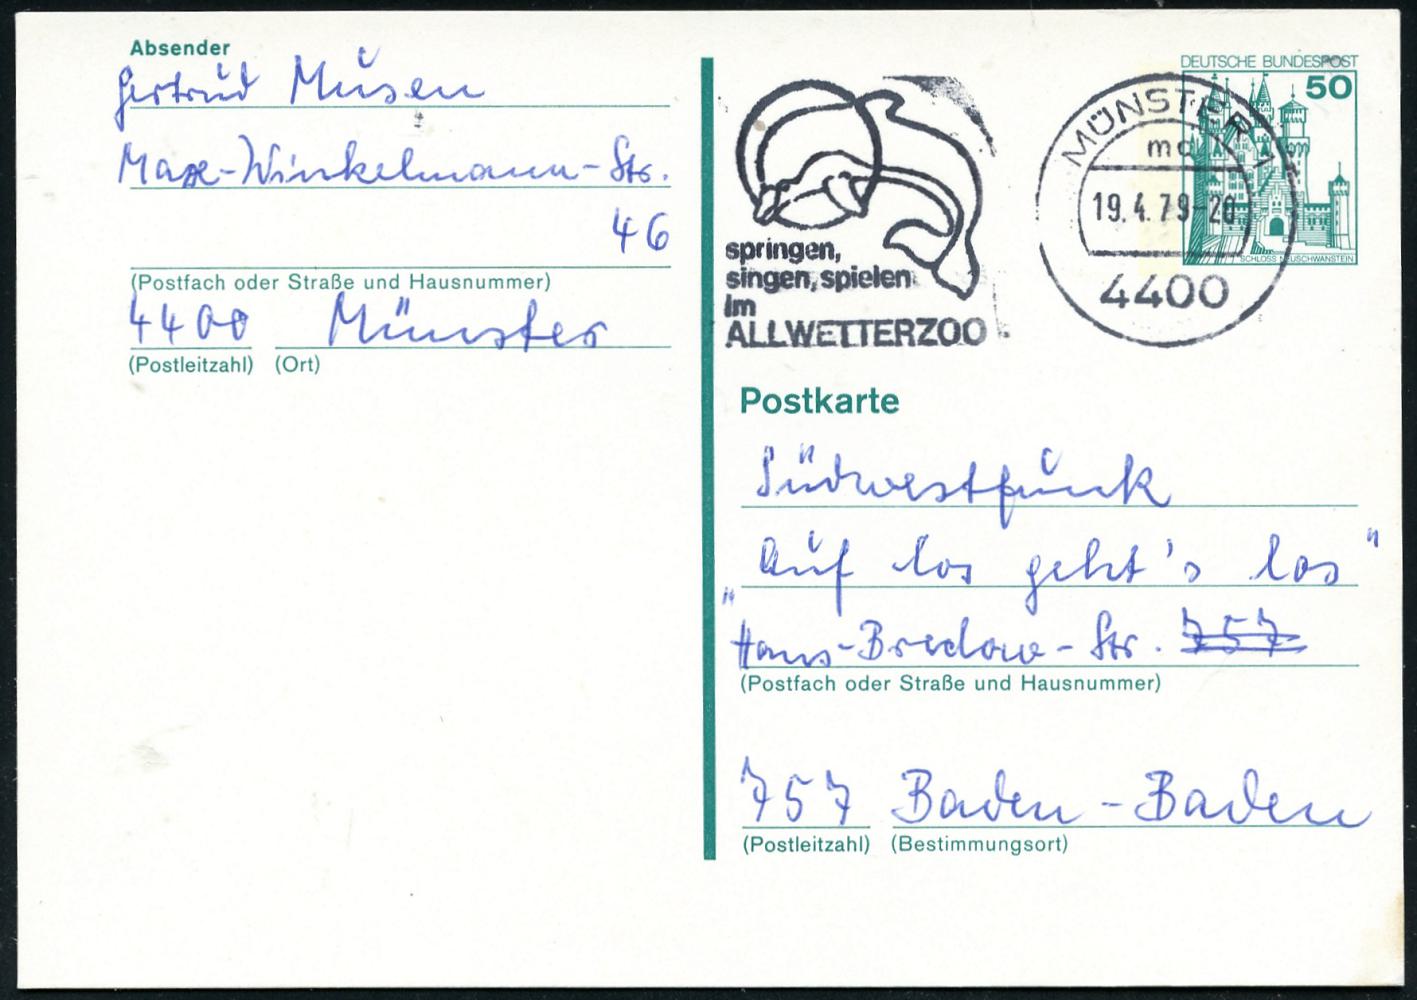 Absender
Gertrud Müsen
Max-Winkelmann-Str.
46
(Postfach oder Straße und Hausnummer)
4400 Münster
(Postleitzahl) (Ort)
springen,
singen, spielen
im
ALLWETTERZOO
MÜNSTER 1
mc
19.4.79-20
4400
DEUTSCHE BUNDESPOST
50
SCHLOSS NEUSCHWANSTEIN
Postkarte
Südwestfunk
Auf los geht's los"
"Hans-Bredow-Str. 757
(Postfach oder Straße und Hausnummer)
757 Baden-Baden
(Postleitzahl) (Bestimmungsort)